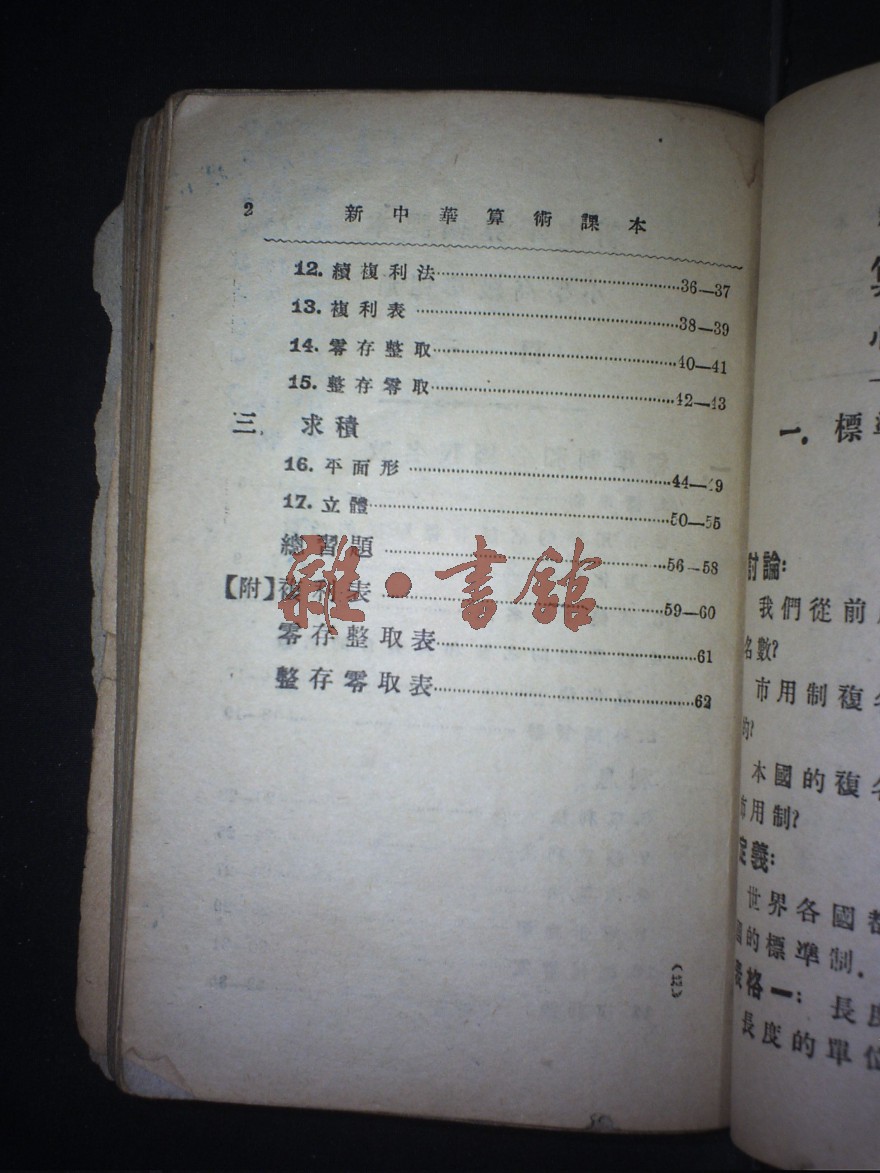 2 新中華算術課本
12. 續複利法……36—37
13. 複利表……38—39
14. 零存整取……40—41
15. 整存零取……42—43
三. 求積
16. 平面形……44—49
17. 立體……50—55
總習題……56—58
【附】複利表……59—60
零存整取表……61
整存零取表……62
雜·書館
一. 標
討論:
我們從前
名數?
市用制複名
的?
本國的複名
市用制?
定義:
世界各國都
國的標準制.
表格一: 長度
長度的單位